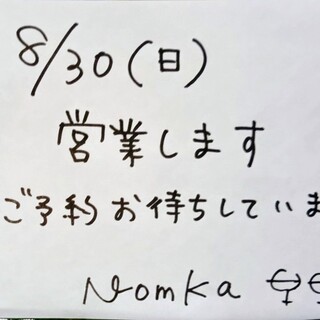 8/30(日)
営業します
ご予約お待ちしていま
Nomka